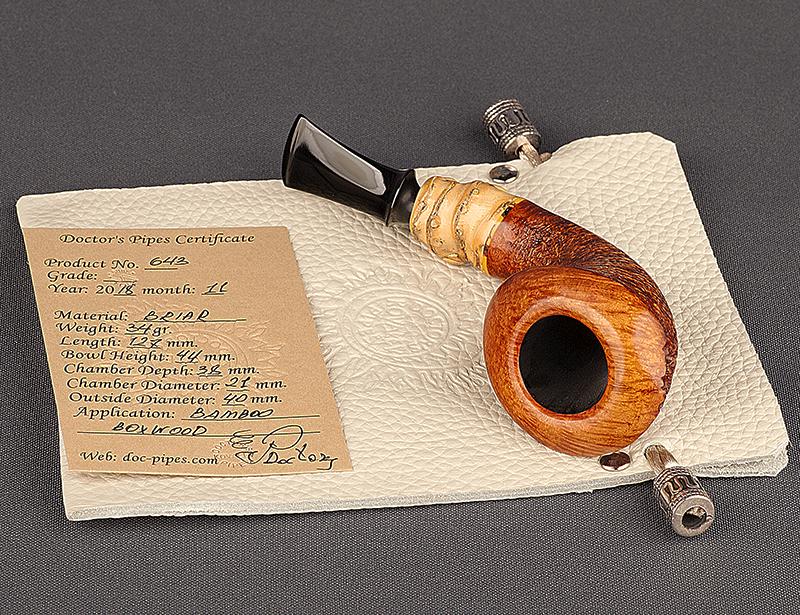 Doctor's Pipes Certificate
Product No. 643
Grade:
Year: 2018 month: 11
Material: BRIAR
Weight: 34 gr.
Length: 127 mm.
Bowl Height: 44 mm.
Chamber Depth: 38 mm.
Chamber Diameter: 21 mm.
Outside Diameter: 40 mm.
Application: BAMBOO
BOXWOOD
Web: doc-pipes.com